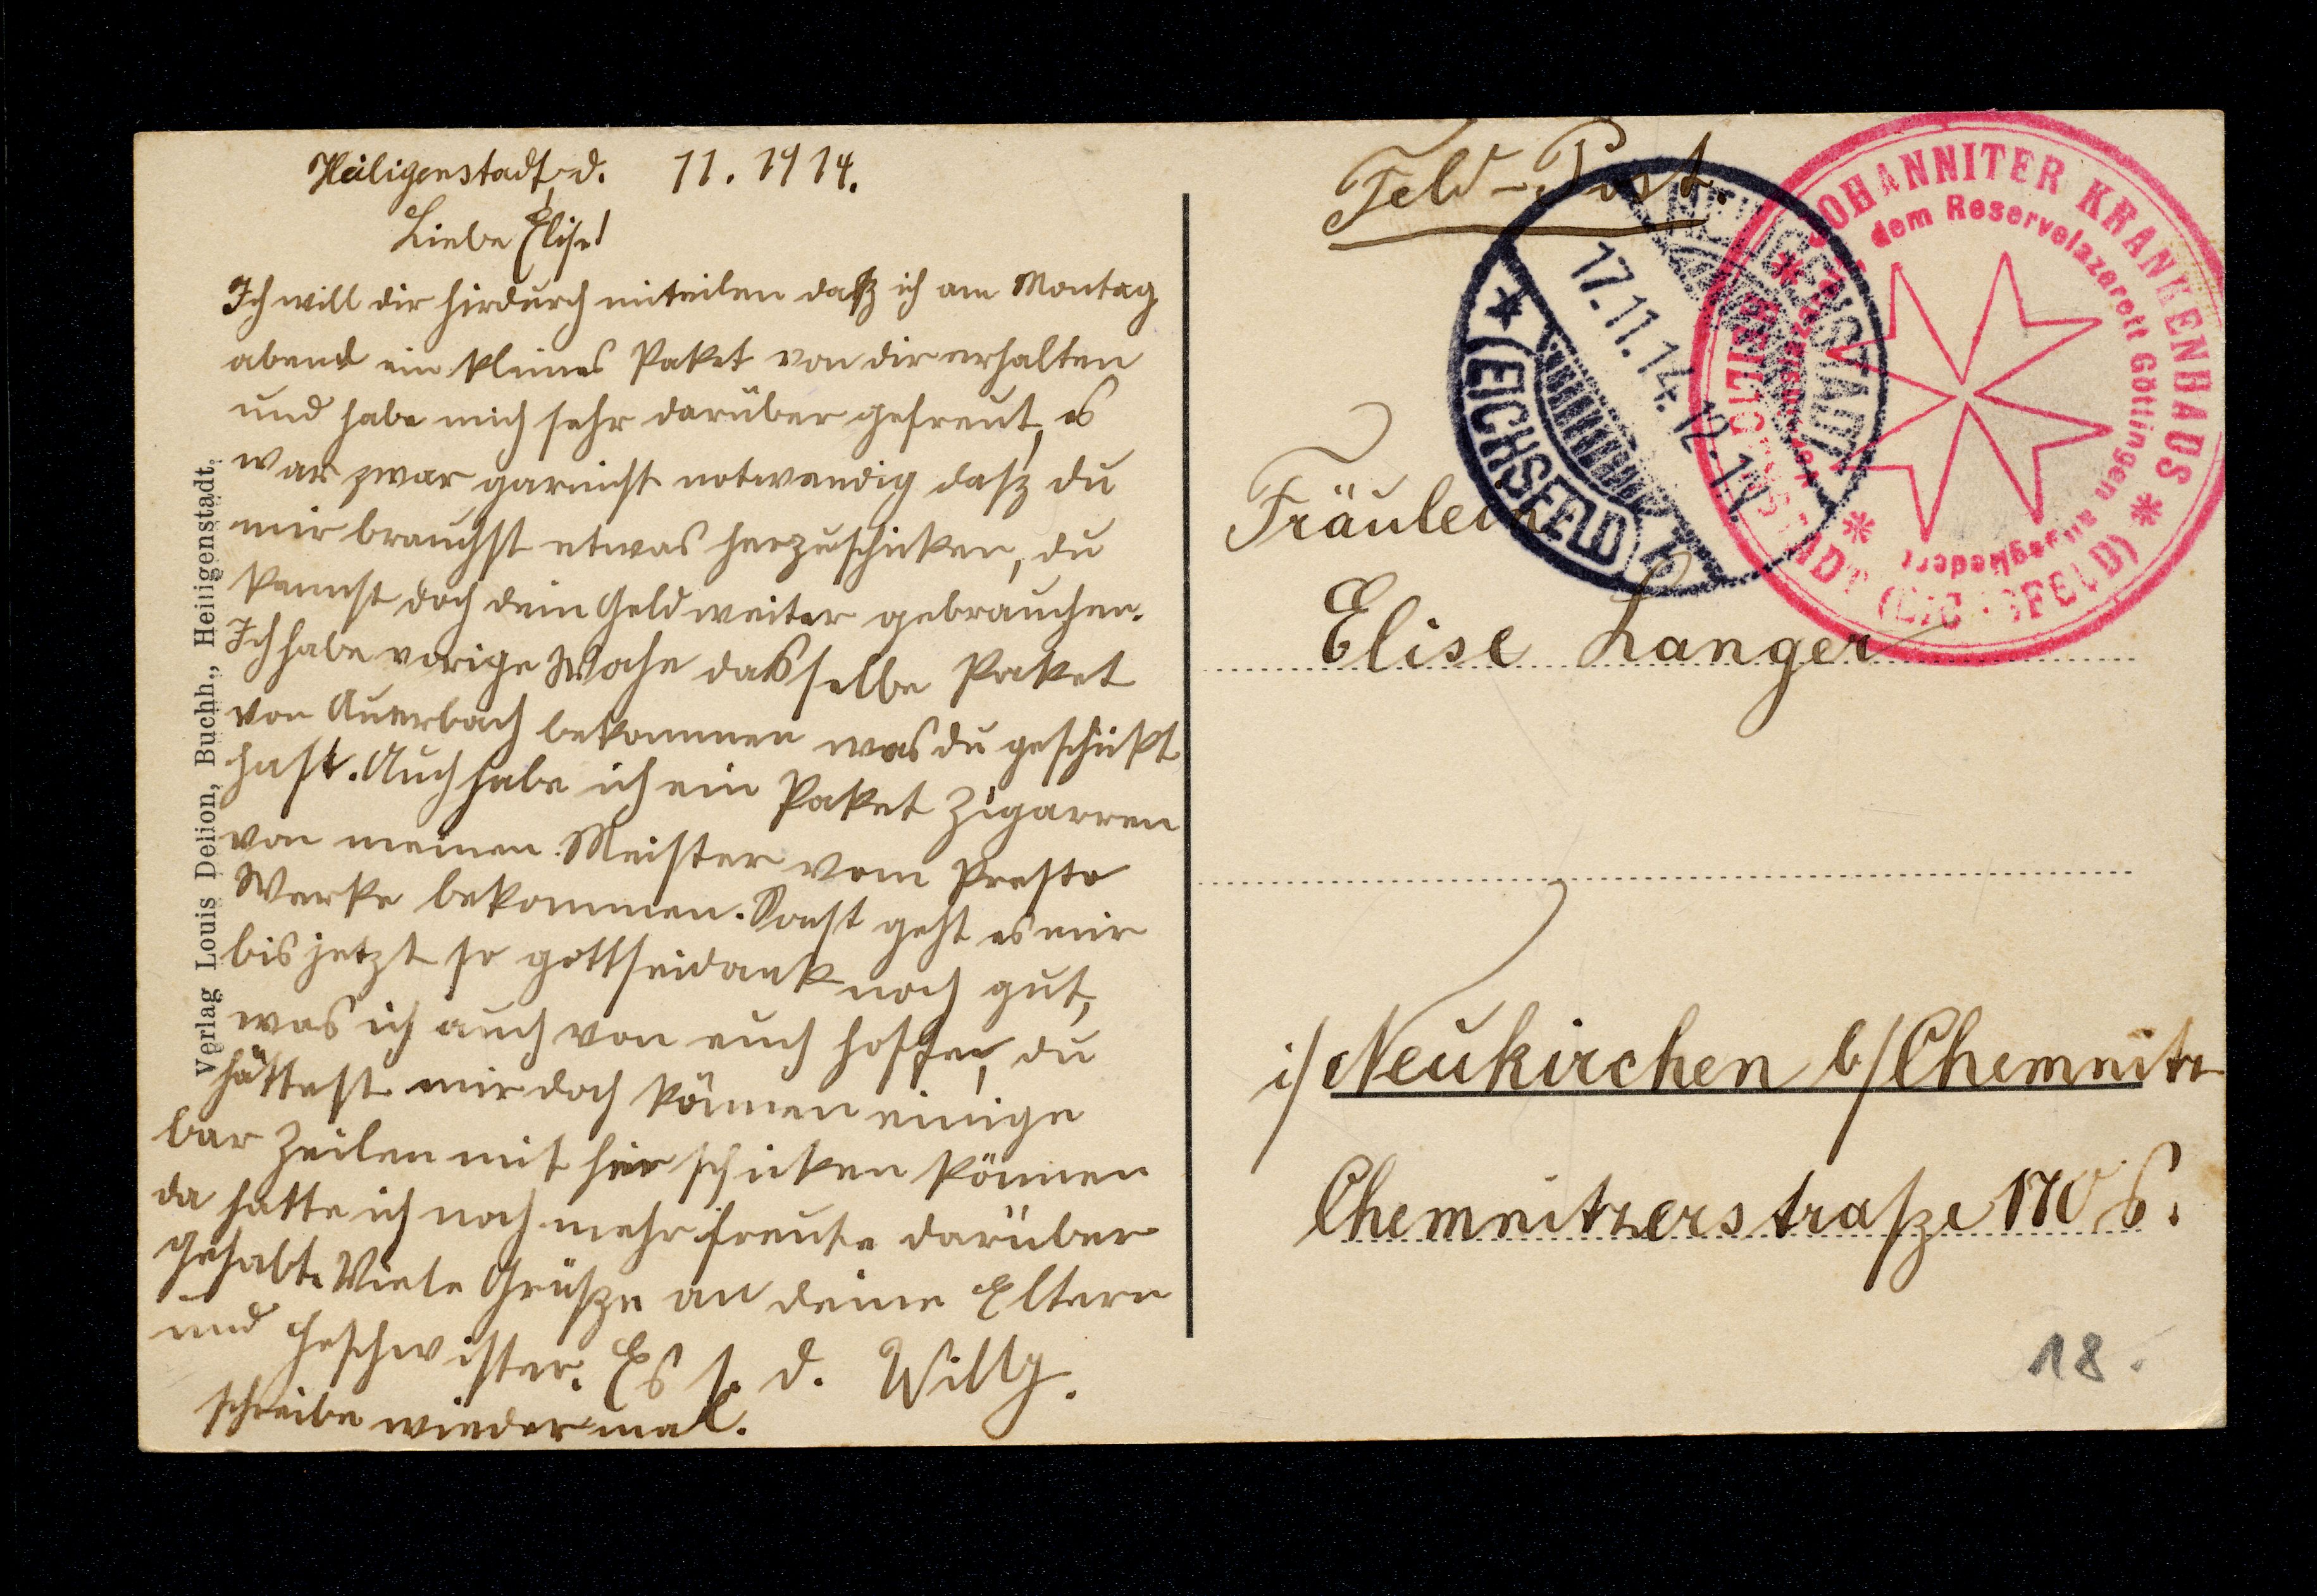 Heiligenstadt, d. 11. 1914.
Liebe Elise!
Ich will dir hirdurch miteilen dasz ich am Montag
abend ein kleines Paket von dir erhalten
und habe mich sehr darüber gefreut, es
war zwar garnicht notwendig dasz du
mir brauchst etwas herzuschicken, du
kannst doch dein Geld weiter gebrauchen.
Ich habe vorige Woche dasselbe Paket
von Auerbach bekommen was du geschickt
hast. Auch habe ich ein Paket Zigarren
von meinen Meister vom Presto
Werke bekommen. Sonst geht es mir
bis jetzt so gottseidank noch gut,
was ich auch von euch hoffe, du
hättest mir doch können einige
bar Zeilen mit hier schicken können
da hatte ich noch mehr freute darüber
gehabt. Viele Grüße an deine Eltern
und Geschwister. Es s. d. Willy.
schreibe wieder mal.
Verlag Louis Delion, Buchh., Heiligenstadt.
Feld-Post.
HEILIGENSTADT
17.11.14. 12-1N.
* (EICHSFELD) b
JOHANNITER KRANKENHAUS
* HEILIGENSTADT (EICHSFELD) *
dem Reservelazarett Göttingen angegliedert
Fräulein
Elise Langer
i/ Neukirchen b/ Chemnitz
Chemnitzerstraße 170
18.